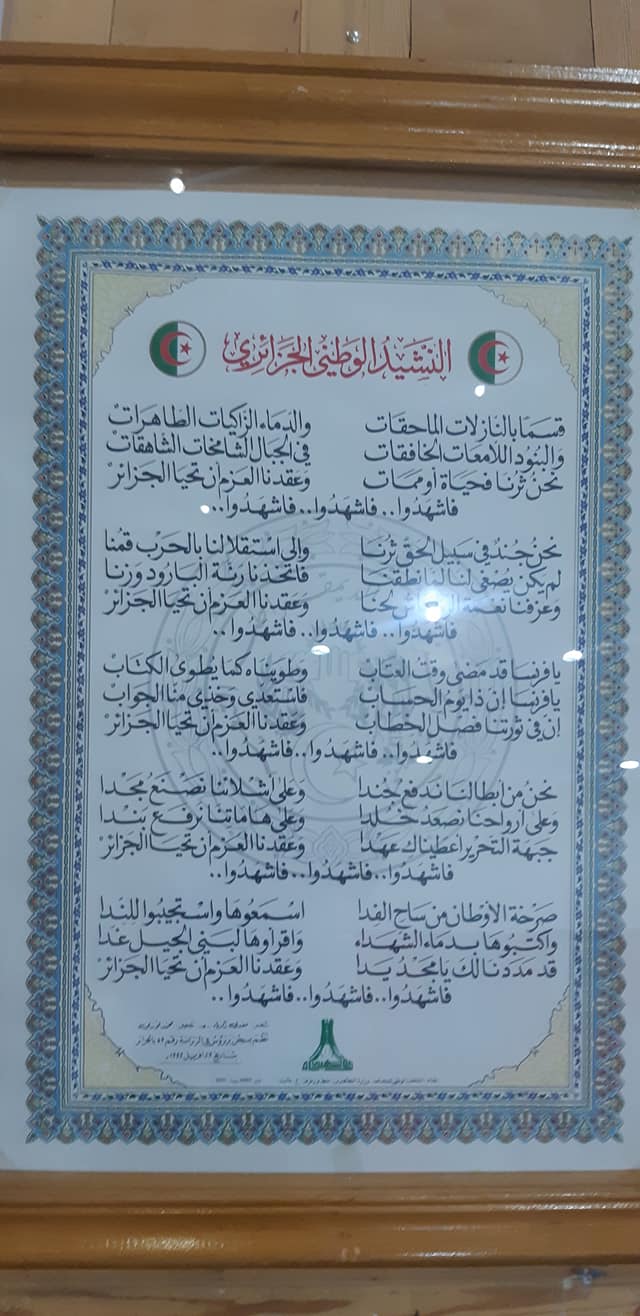 النشيد الوطني الجزائري
قسما بالنازلات الماحقات والدماء الزاكيات الطاهرات
والبنود اللامعات الخافقات في الجبال الشامخات الشاهقات
نحن ثرنا فحياة أو ممات وعقدنا العزم أن تحيا الجزائر
فاشهدوا.. فاشهدوا.. فاشهدوا..
نحن جند في سبيل الحق ثرنا وإلى استقلالنا بالحرب قمنا
لم يكن يصغى لنا لما نطقنا فاتخذنا رنة البارود وزنا
وعزفنا نغمة لحنا وعقدنا العزم أن تحيا الجزائر
فاشهدوا.. فاشهدوا.. فاشهدوا..
يا فرنسا قد مضى وقت العتاب وطويناه كما يطوى الكتاب
يا فرنسا إن ذا يوم الحساب فاستعدي وخذي منا الجواب
إن في ثورتنا فصل الخطاب وعقدنا العزم أن تحيا الجزائر
فاشهدوا.. فاشهدوا.. فاشهدوا..
نحن من أبطالنا ندفع جندا وعلى أشلائنا نصنع مجدا
وعلى أرواحنا نصعد خلدا وعلى هاماتنا نرفع بندا
جبهة التحرير أعطيناك عهدا وعقدنا العزم أن تحيا الجزائر
فاشهدوا.. فاشهدوا.. فاشهدوا..
صرخة الأوطان من ساح الفدا اسمعوها واستجيبوا للندا
واكتبوها بدماء الشهداء واقرأوها لبني الجيل غدا
قد مددنا لك يا مجد يدا وعقدنا العزم أن تحيا الجزائر
فاشهدوا.. فاشهدوا.. فاشهدوا..
نظم بسجن في الزنزانة رقم بالجزائر
بتاريخ